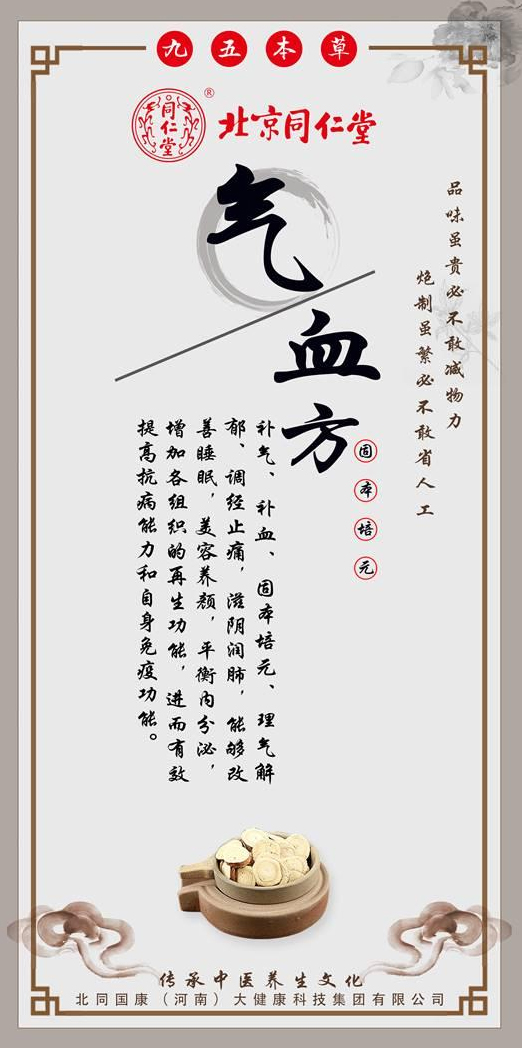 九五本草
同仁堂
®
北京同仁堂
气血方
品味虽贵必不敢减物力
炮制虽繁必不敢省人工
固本培元
补气、补血、固本培元、理气解
郁、调经止痛,滋阴润肺,能够改
善睡眠,美容养颜,平衡内分泌,
增加各组织的再生功能,进而有效
提高抗病能力和自身免疫功能。
传承中医养生文化
北同国康(河南)大健康科技集团有限公司